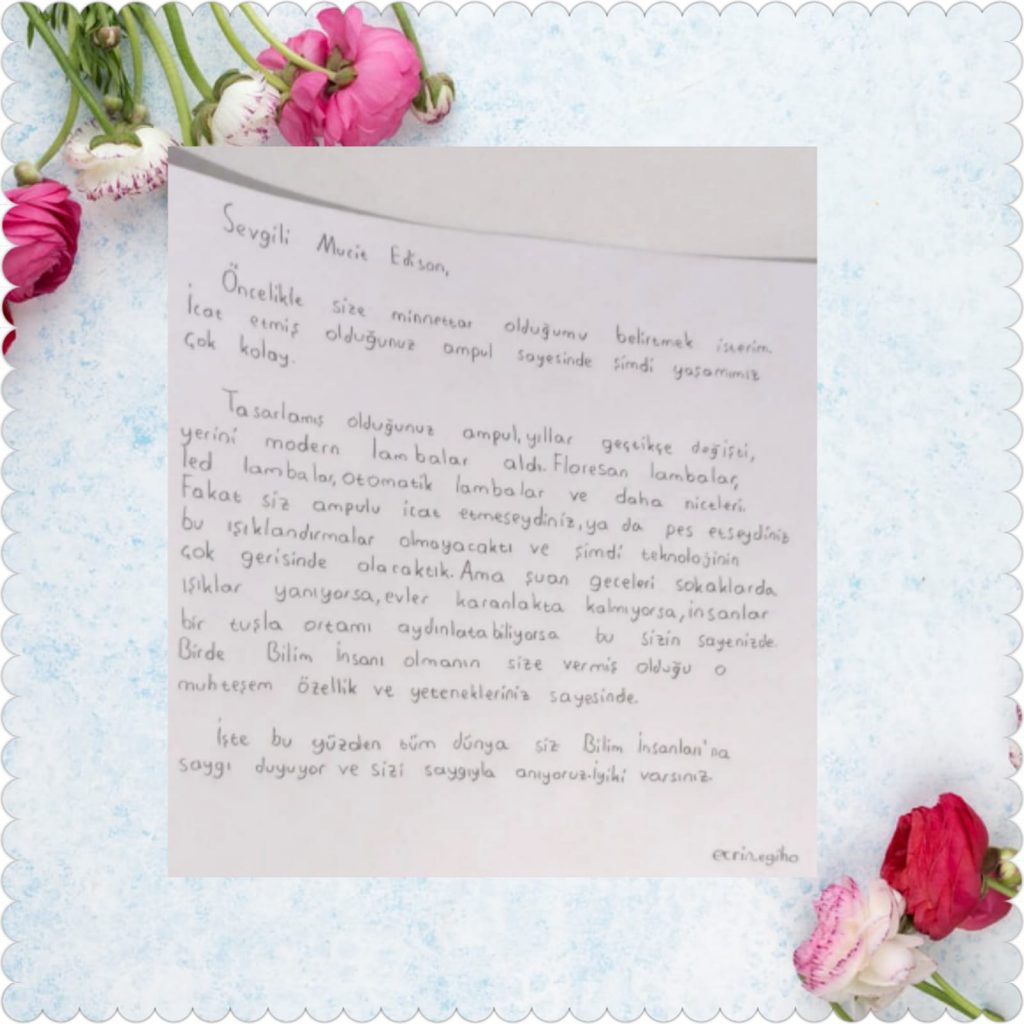 Sevgili Mucit Edison,
Öncelikle size minnettar olduğumu belirtmek isterim.
İcat etmiş olduğunuz ampul sayesinde şimdi yaşamımız
çok kolay.
Tasarlamış olduğunuz ampul, yıllar geçtikçe değişti,
yerini modern lambalar aldı. Floresan lambalar,
led lambalar, otomatik lambalar ve daha niceleri.
Fakat siz ampulu icat etmeseydiniz, ya da pes etseydiniz
bu ışıklandırmalar olmayacaktı ve şimdi teknolojinin
çok gerisinde olacaktık. Ama şuan geceleri sokaklarda
ışıklar yanıyorsa, evler karanlakta kalmıyorsa, insanlar
bir tuşla ortamı aydınlatabiliyorsa bu sizin sayenizde.
Birde Bilim İnsanı olmanın size vermiş olduğu o
muhteşem özellik ve yetenekleriniz sayesinde.
İşte bu yüzden tüm dünya siz Bilim İnsanları'na
saygı duyuyor ve sizi saygıyla anıyoruz. İyiki varsınız.